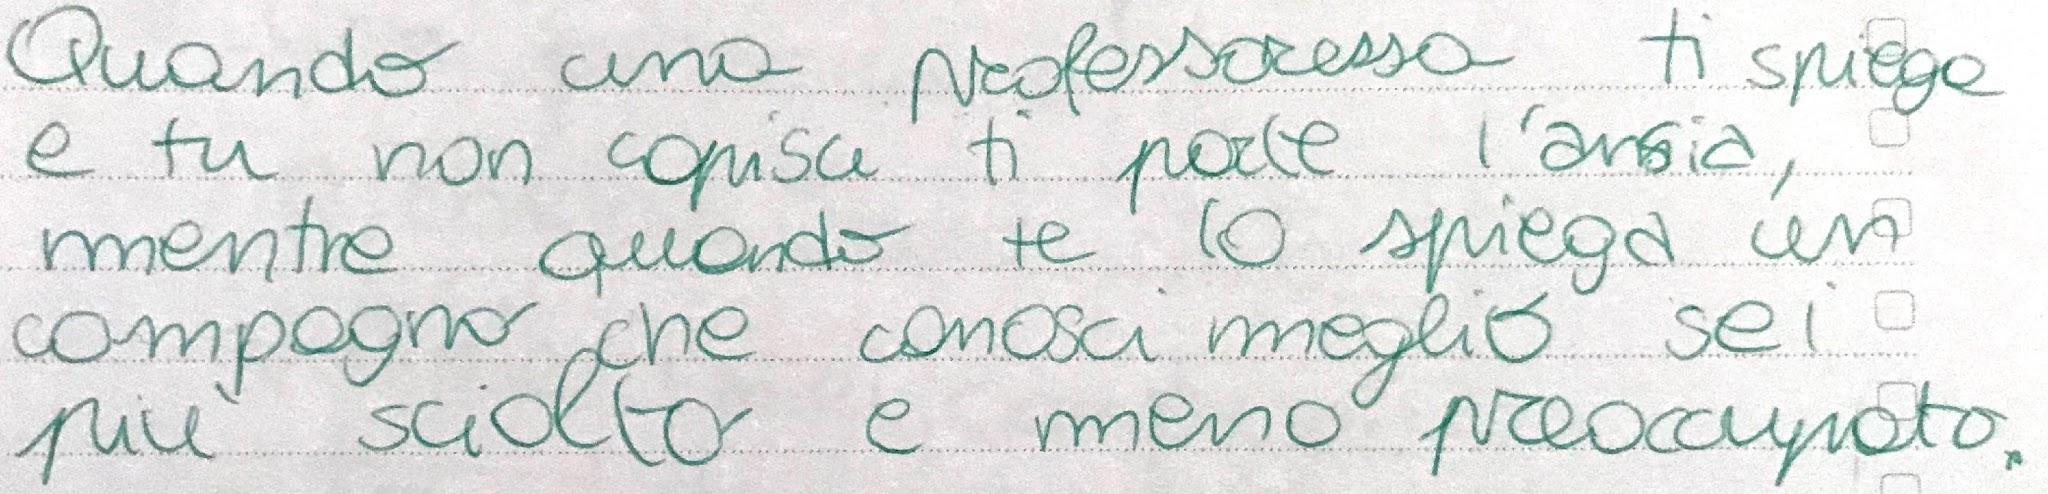 Quando una professoressa ti spiega
e tu non capisci ti parte l'ansia,
mentre quando te lo spiega un
compagno che conosci meglio sei
più sciolto e meno preoccupato.